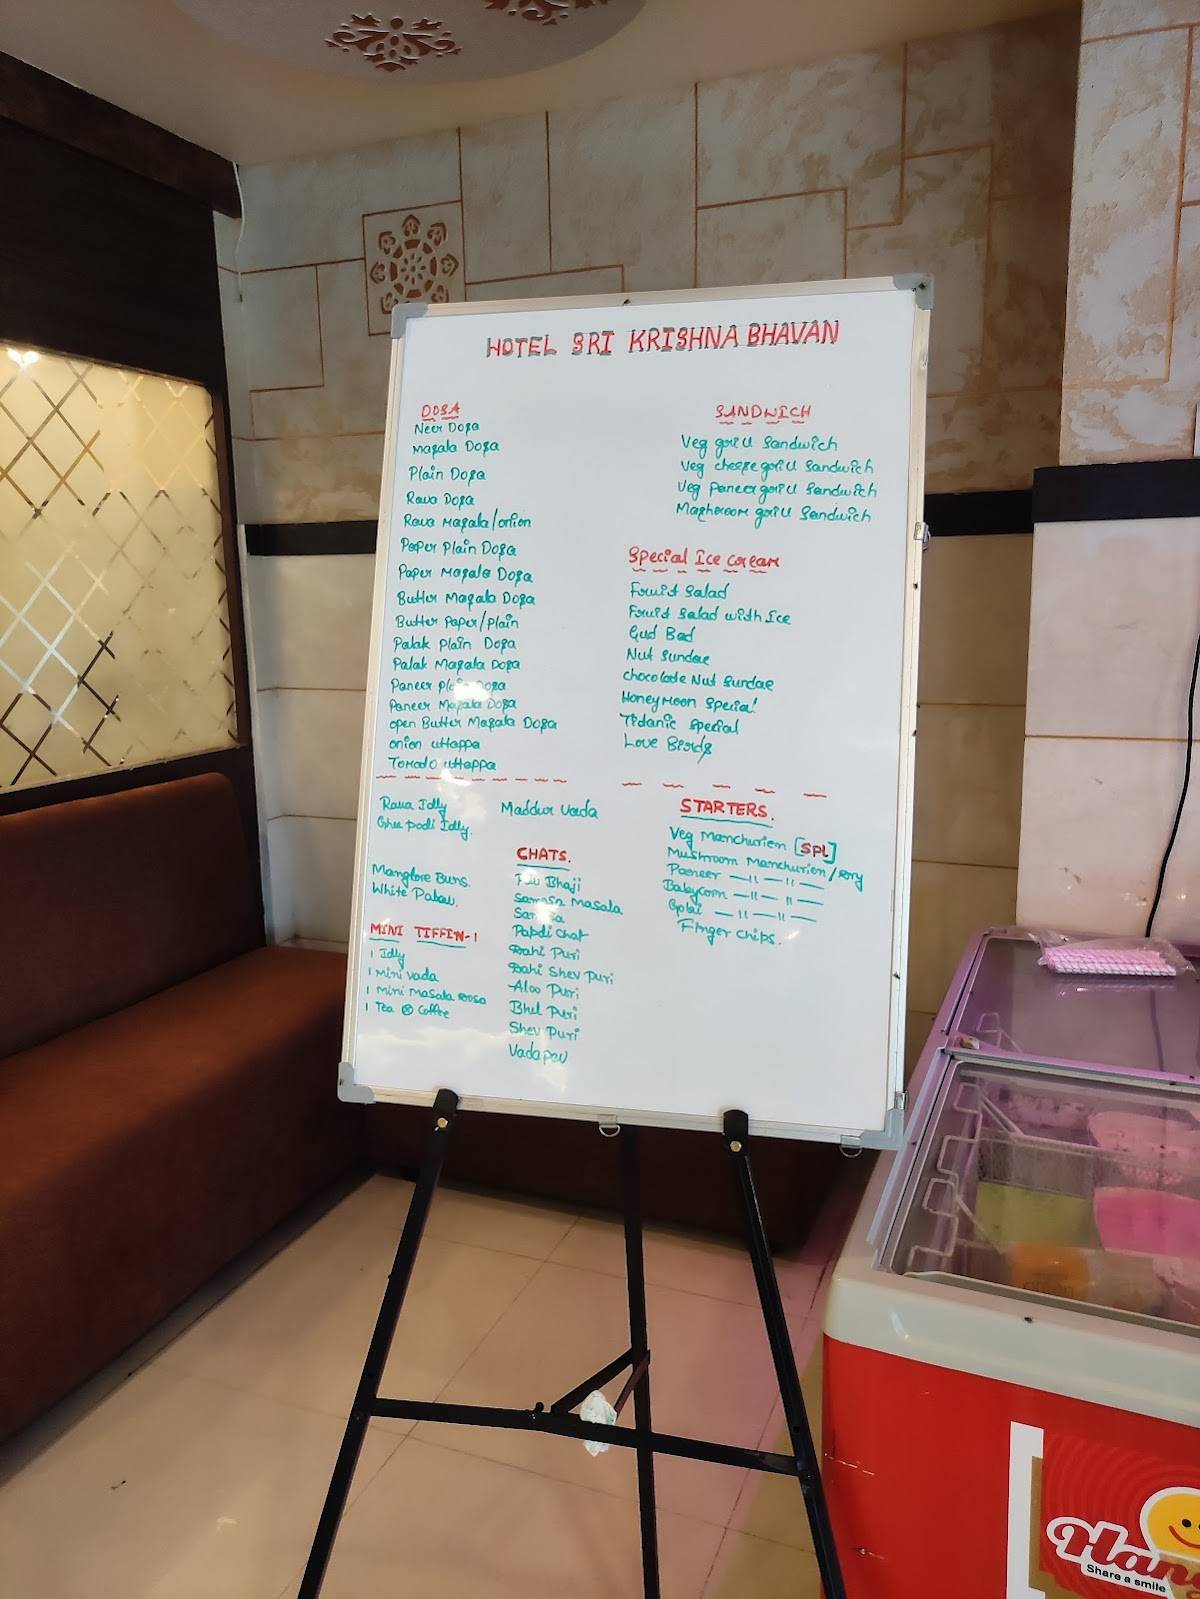 HOTEL SRI KRISHNA BHAVAN
DOSA
Neer Dosa
Masala Dosa
Plain Dosa
Rava Dosa
Rava Masala/onion
Paper Plain Dosa
Paper Masala Dosa
Butter Masala Dosa
Butter Paper/Plain
Palak Plain Dosa
Palak Masala Dosa
Paneer Plain Dosa
Paneer Masala Dosa
open Butter Masala Dosa
onion uttappa
Tomado uttappa
SANDWICH
Veg grill Sandwich
Veg cheese grill Sandwich
Veg Paneer grill Sandwich
Mashroom grill Sandwich
Special Ice Cream
Fruit Salad
Fruit Salad with Ice
Gud Bad
Nut Sundae
Chocolate Nut Sundae
Honey Moon Special
Titanic Special
Love Birds
Rava Idly
Ghee Podi Idly.
Manglore Buns.
White Palav.
MINI TIFFIN-1
1 Idly
1 Mini vada
1 Mini Masala Dosa
1 Tea Coffee
Maddur Vada
CHATS.
Pav Bhaji
Samosa Masala
Samosa
Papdi Chat
Dahi Puri
Dahi Shev Puri
Aloo Puri
Bhel Puri
Shev Puri
Vadapav
STARTERS.
Veg Manchurien [SPL]
Mushroom Manchurien/
Paneer —〃—〃—
Babycorn —〃—〃—
Gobi —〃—〃—
Finger Chips.
Share a smile